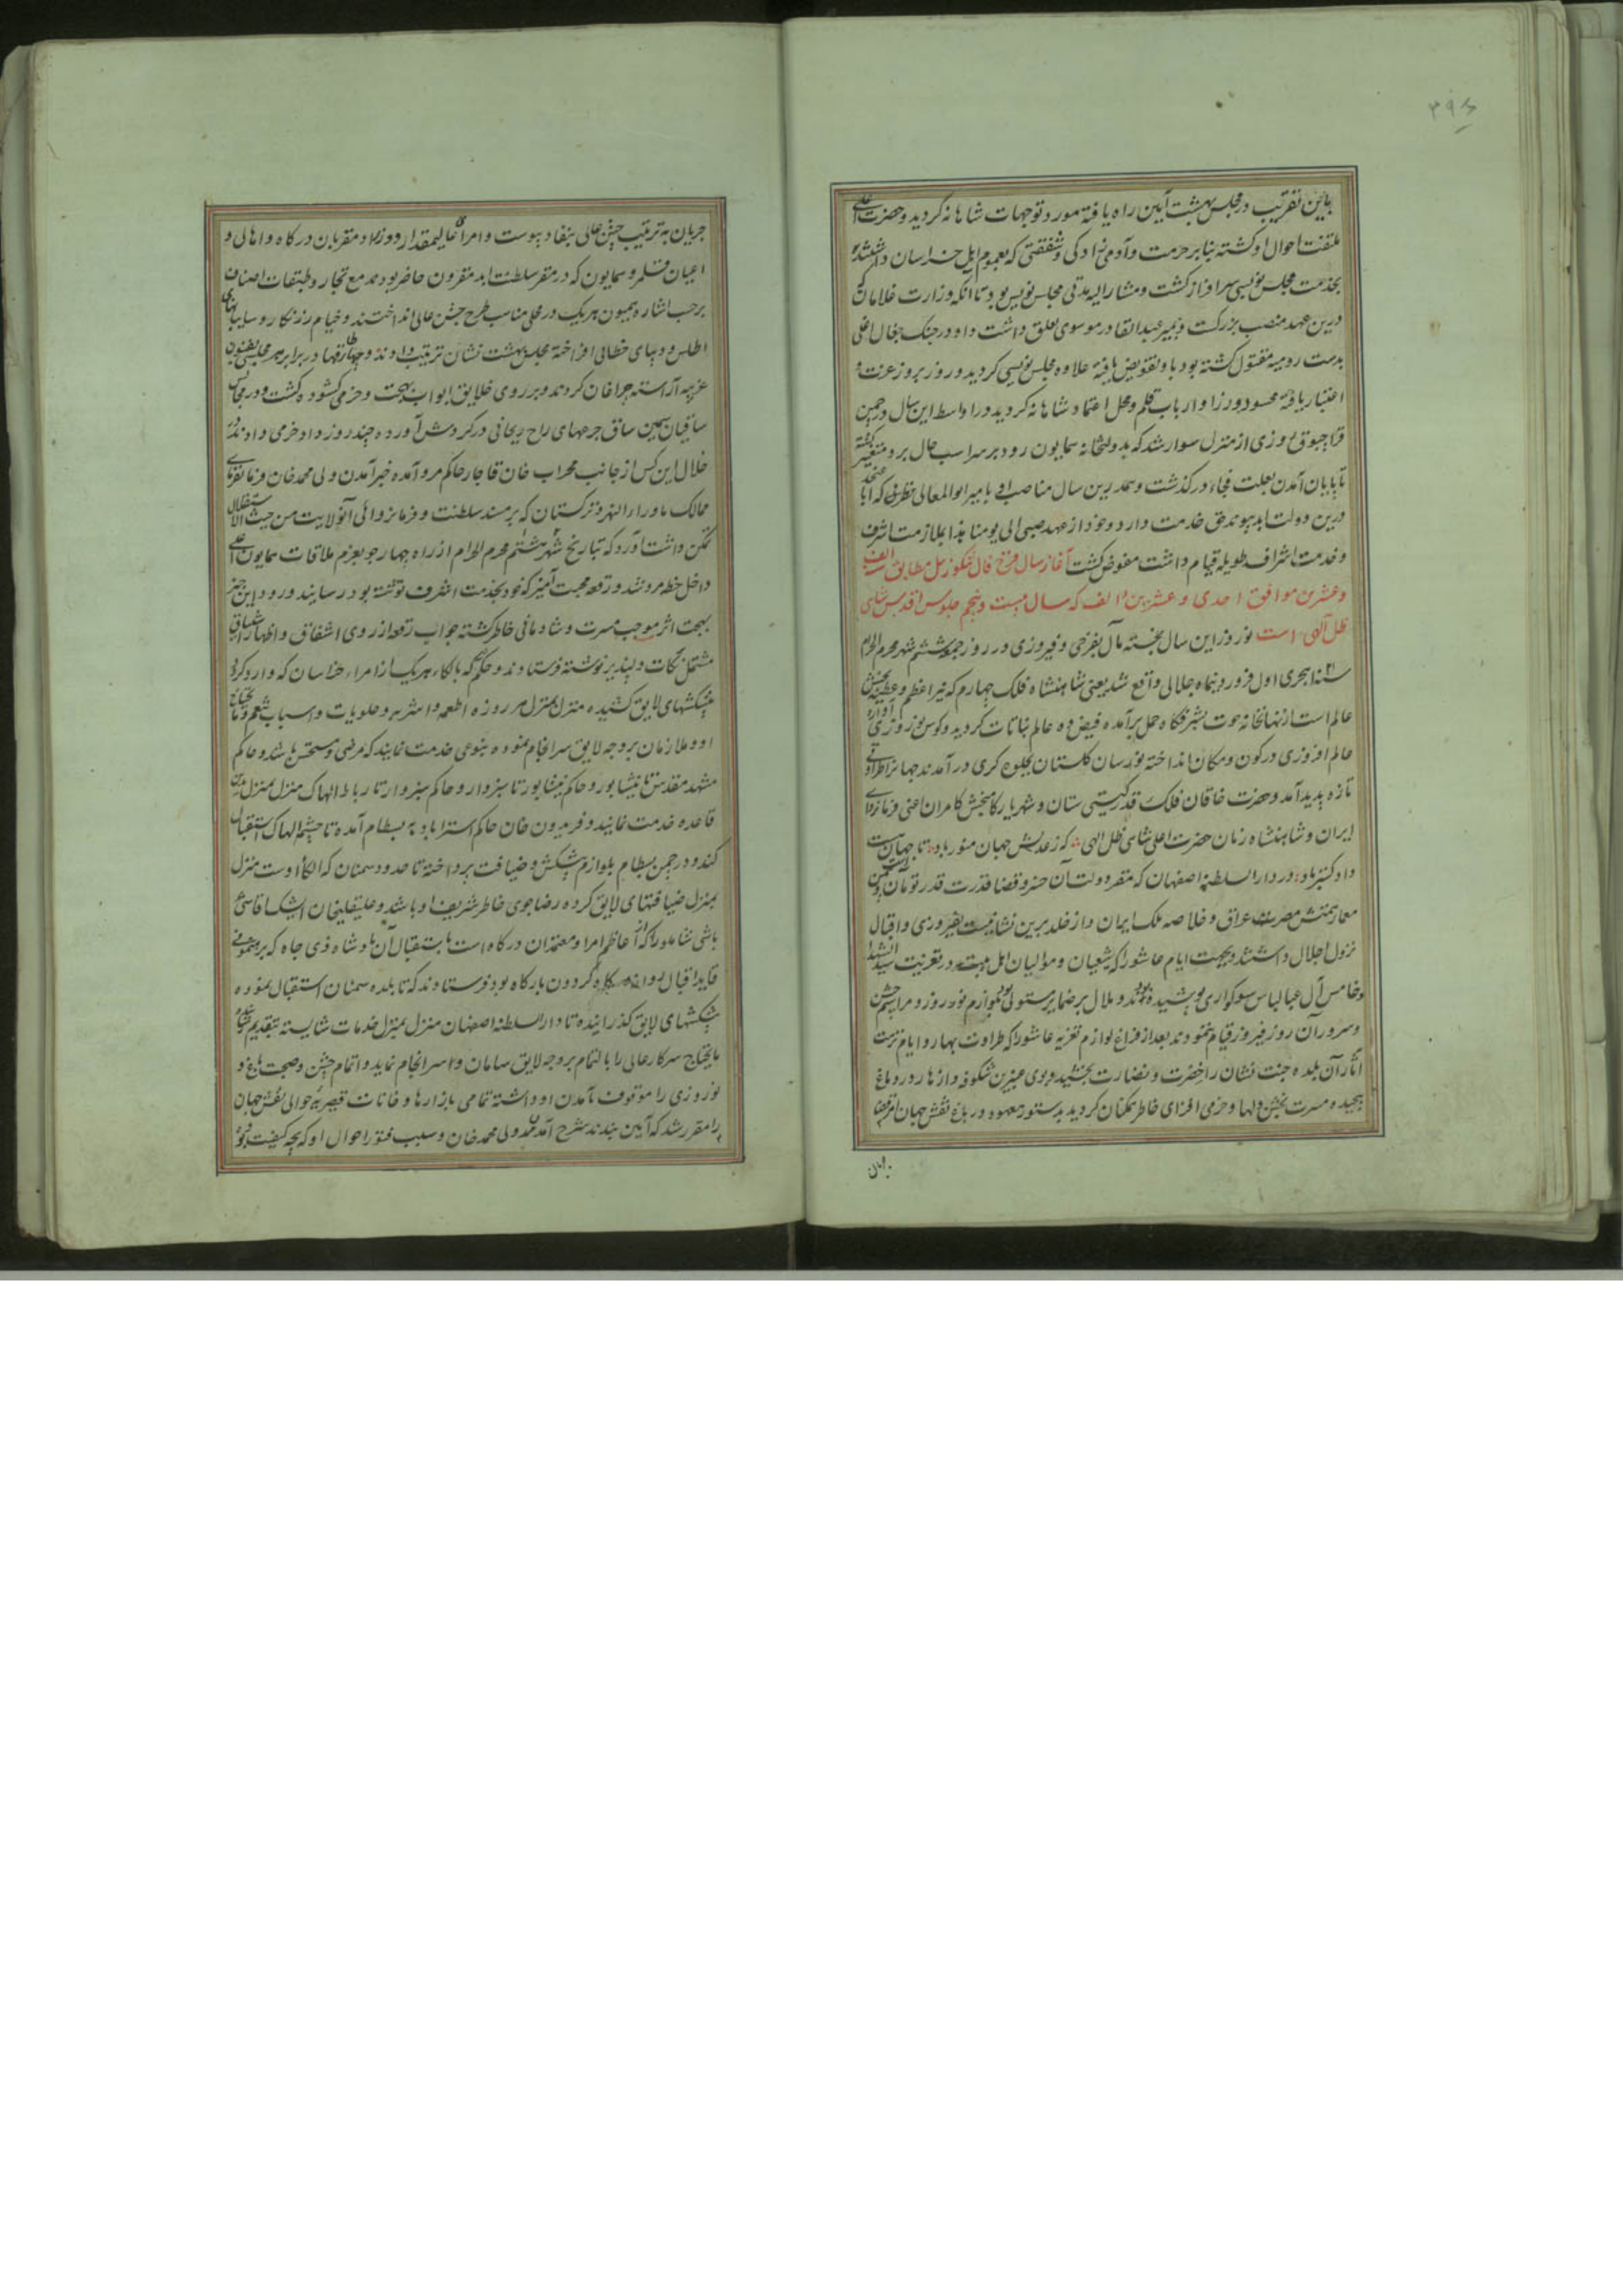 ۳۹۶
باین تقریب در مجلس بهشت آیین راه یافته مورد توجهات شاهانه کردید و حضرت اعلی
ملتفت احوال او کشته بنابر حرمت و آدمی زادکی و شفقتی که بعموم اهل خراسان داشتند
بخدمت مجلس نویسی سرافراز کشت و مشارالیه مدتی مجلس نویس بود تا آنکه وزارت غلامان که
درین عهد منصب بزرکست و بمیر عبدالقادر موسوی تعلق داشت و او در جنک جغال اغلی
بدست رومیه مقتول کشته بود باو تفویض یافته علاوه مجلس نویسی کردید و روز بروز عزت و
اعتبار یافته محسود وزرا و ارباب قلم و محل اعتماد شاهانه کردید در اواسط این سال در چمن
قراچبوق روزی از منزل سوار شد که بدولتخانه همایون رود بر سر اسب حال برو متغیر کشته
تا پایان آمدن بعلت فجاء درکذشت و همدرین سال مناصب او بامیر ابوالمعالی نطنزی که ابا عن جد
درین دولت ابد پیوند حق خدمت دارد و خود از عهد صبی الی یومنا هذا بملازمت اشرف
و خدمت اشراف طویله قیام داشت مفوض کشت آغاز سال فرخ فال تنکوزئیل مطابق سنه الف
و عشرین موافق احدی و عشرین و الف که سال بیست و پنجم جلوس اقدس شاهی
ظل الهی است نوروز این سال خجسته مآل بفرخی و فیروزی در روز جمعه ششم شهر محرم الحرام
سنه ۱۰۲۱ هجری اول فروردینماه جلالی واقع شد یعنی شاهنشاه فلک چهارم که نیر اعظم و عطیه بخش
عالم است از نهانخانه حوت بشرفکاه حمل برآمده فیض ده عالم نباتات کردید و کوس نوروزی آوازه
عالم افروزی در کون و مکان انداخته نورسان کلستان بجلوه کری درآمدند جهانرا طراوتی
تازه پدید آمد و حضرت خاقان فلک قدر کیتی ستان و شهریار کامبخش کامران اعنی فرمانروای
ایران و شاهنشاه زمان حضرت اعلی شاهی ظل الهی که ز عدلش جهان منور باد تا جهان هست
داد کستر باد در دارالسلطنه اصفهان که مقر دولت آن خسرو قضا قدرت قدر توامان و
معارتمنش مصر عراق و خلاصه ملک ایران و از خلد برین نشانیست بفیروزی و اقبال
نزول اجلال داشتند و بجهت ایام عاشورا که شیعیان و موالیان اهل بیت در تعزیت سید الشهدا
و خامس آل عبا لباس سوکواری پوشیده بودند و ملال بر ضمایر مستولی بود بلوازم نوروز و مراسم جشن
و سرور آن روز فیروز قیام ننمودند بعد از فراغ لوازم تعزیه عاشورا که طراوت بهار و ایام نزهت
آثار آن بلده جنت نشان را خضرت و نضارت بخشید و بوی عنبرین شکوفه و ازهار در و باغ
پیچیده مسرت بخش دلها و خرمی افزای خاطر همکنان کردید بدستور معهود در باغ نقش جهان امر قضا
جریان به ترتیب جشن عالی بنفاذ پیوست و امرای عالیمقدار و وزرا و مقربان درکاه و اهالی و
اعیان قلمرو همایون که در مقر سلطنت ابد مقرون حاضر بودند مع تجار و طبقات اصناف
برحسب اشاره همیون هریک در محلی مناسب طرح جشن عالی انداختند و خیام زرنکار و سایبانهای
اطلس و دیبای خطائی افراخته مجلس بهشت نشان ترتیب دادند و چهارطاقها در برابر هر مجلس بفنون
غریبه آراسته چراغان کردند و بر روی خلایق ابواب بهجت و خرمی کشوده کشت و در مجالس
ساقیان سیمین ساق جرعهای راح ریحانی در کردش آورده چند روز داد خرمی دادند در
خلال این کس از جانب محراب خان قاجار حاکم مرو آمده خبر آمدن ولی محمد خان فرمانفرمای
ممالک ماوراءالنهر و ترکستان که بر مسند سلطنت و فرمانروائی آنولایت من حیث الاستقلال
تمکن داشت آورد که بتاریخ شهر هشتم محرم الحرام از راه چهارجو بعزم ملاقات همایون اعلی
داخل خطه مرو شد و رقعه محبت آمیز که خود بخدمت اشرف نوشته بود رسانید ورود این خبر
بهجت اثر موجب مسرت و شادمانی خاطر کشته جواب رقعه از روی اشفاق و اظهار اشتیاق
مشتمل نکات دلپذیر نوشته فرستادند و حکم شد که بالکاء هریک از امراء خراسان که وارد کردد
پیشکشهای لایق کشیده منزل بمنزل هر روزه اطعمه و اشربه و حلویات و اسباب تنعم و مایحتاج
او و ملازمان بروجه لایق سرانجام نموده بنوعی خدمت نمایند که مرضی و مستحسن باشد و حاکم
مشهد مقدس تا نیشابور و حاکم نیشابور تا سبزوار و حاکم سبزوار تا رباط الهاک منزل بمنزل بدین
قاعده خدمت نمایند و فریدون خان حاکم استراباد به بسطام آمده تا چشمه الهاک استقبال
کند و در چمن بسطام بلوازم پیشکش و ضیافت پرداخته تا حدود سمنان که الکاء اوست منزل
بمنزل ضیافتهای لایق کرده رضاجوی خاطر شریف او باشد و علیقلیخان ایشک آقاسی
باشی شاملو را که از اعاظم امرا و معتمدان درکاه است باستقبال آن پادشاه ذی جاه که برهنمونی
قاید اقبال روانه درکاه کردون بارکاه بود فرستادند که تا بلده سمنان استقبال نموده
پیشکشهای لایق کذرانیده تا دارالسلطنه اصفهان منزل بمنزل خدمات شایسته بتقدیم رساند
مایحتاج سرکار عالی را بالتمام بروجه لایق سامان و سرانجام نماید و اتمام جشن و صحبت باغ و
نوروزی را موقوف بآمدن او داشته تمامی بازارها و خانات قیصریه حوالی نقش جهان
را مقرر شد که آیین بندند شرح آمدن ولی محمد خان و سبب فتور احوال او که بچه کیفیت بود